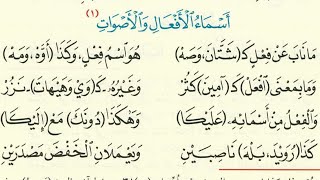 أَسْمَاءُ الْأَفْعَالِ وَالْأَصْوَاتِ (١)
مَا نَابَ عَنْ فِعْلٍ كَ (شَتَّانَ، وَصَهْ) هُوَ اسْمُ فِعْلٍ، وَكَذَا (أَوَّهْ، وَمَهْ)
وَمَا بِمَعْنَى (افْعَلْ) كَ (آمِينَ) كَثُرْ وَغَيْرُهُ كَ (وَيْ وَهَيْهَاتَ)، نَزُرْ
وَالْفِعْلُ مِنْ أَسْمَائِهِ. (عَلَيْكَا) وَهَكَذَا (دُونَكَ) مَعْ (إِلَيْكَا)
كَذَا (رُوَيْدَ، بَلْهَ) نَاصِبَيْنِ وَيَعْمَلَانِ الْخَفْضَ مَصْدَرَيْنِ